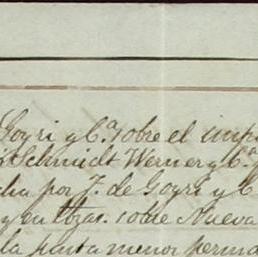 Goyri y Cª sobre el imp
Schmidt Werner y Cª
cha por J. de Goyri y C
y en Lbzas. sobre Nueva
la parta menor perma